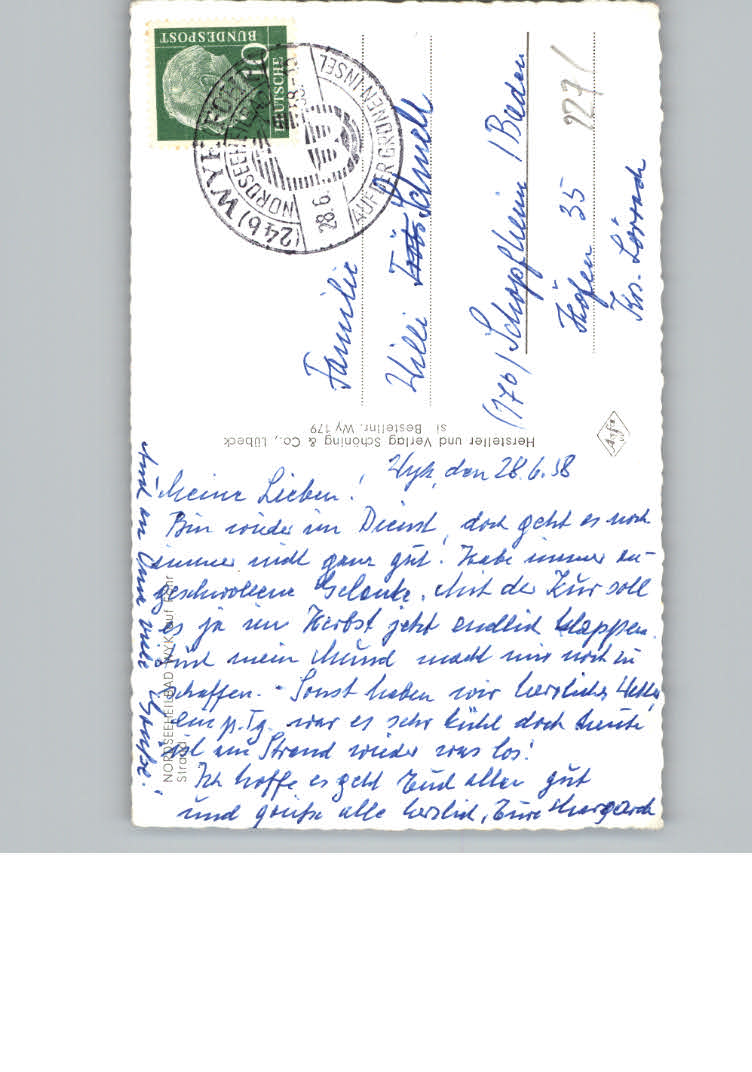 Wyk, den 28.6.58
Meine Lieben!
Bin wieder im Dienst, doch geht es noch
immer nicht ganz gut! Habe immer an-
geschwollene Gelenke. Mit der Kur soll
es ja im Herbst jetzt endlich klappen.
Und mein Mund macht mir noch zu
schaffen. - Sonst haben wir herrliches Wetter,
ein p. Tg. war es sehr kühl doch heute
ist am Strand wieder was los!
Ich hoffe es geht Euch allen gut
und grüße alle herzlich, Eure Margareth
Und an Oma viele Grüße!
NORDSEEHEILBAD WYK auf Föhr
Strand
Hersteller und Verlag Schöning & Co., Lübeck
si Bestellnr. Wy 179
Agfa
Familie
Willi Schnell
(17b) Schopfheim / Baden
Höfen 35
Krs. Lörrach
227/
DEUTSCHE
BUNDESPOST
10
(24b) WYK FÖHR
NORDSEEHEILBAD
28.6.
AUF DER GRÜNEN INSEL